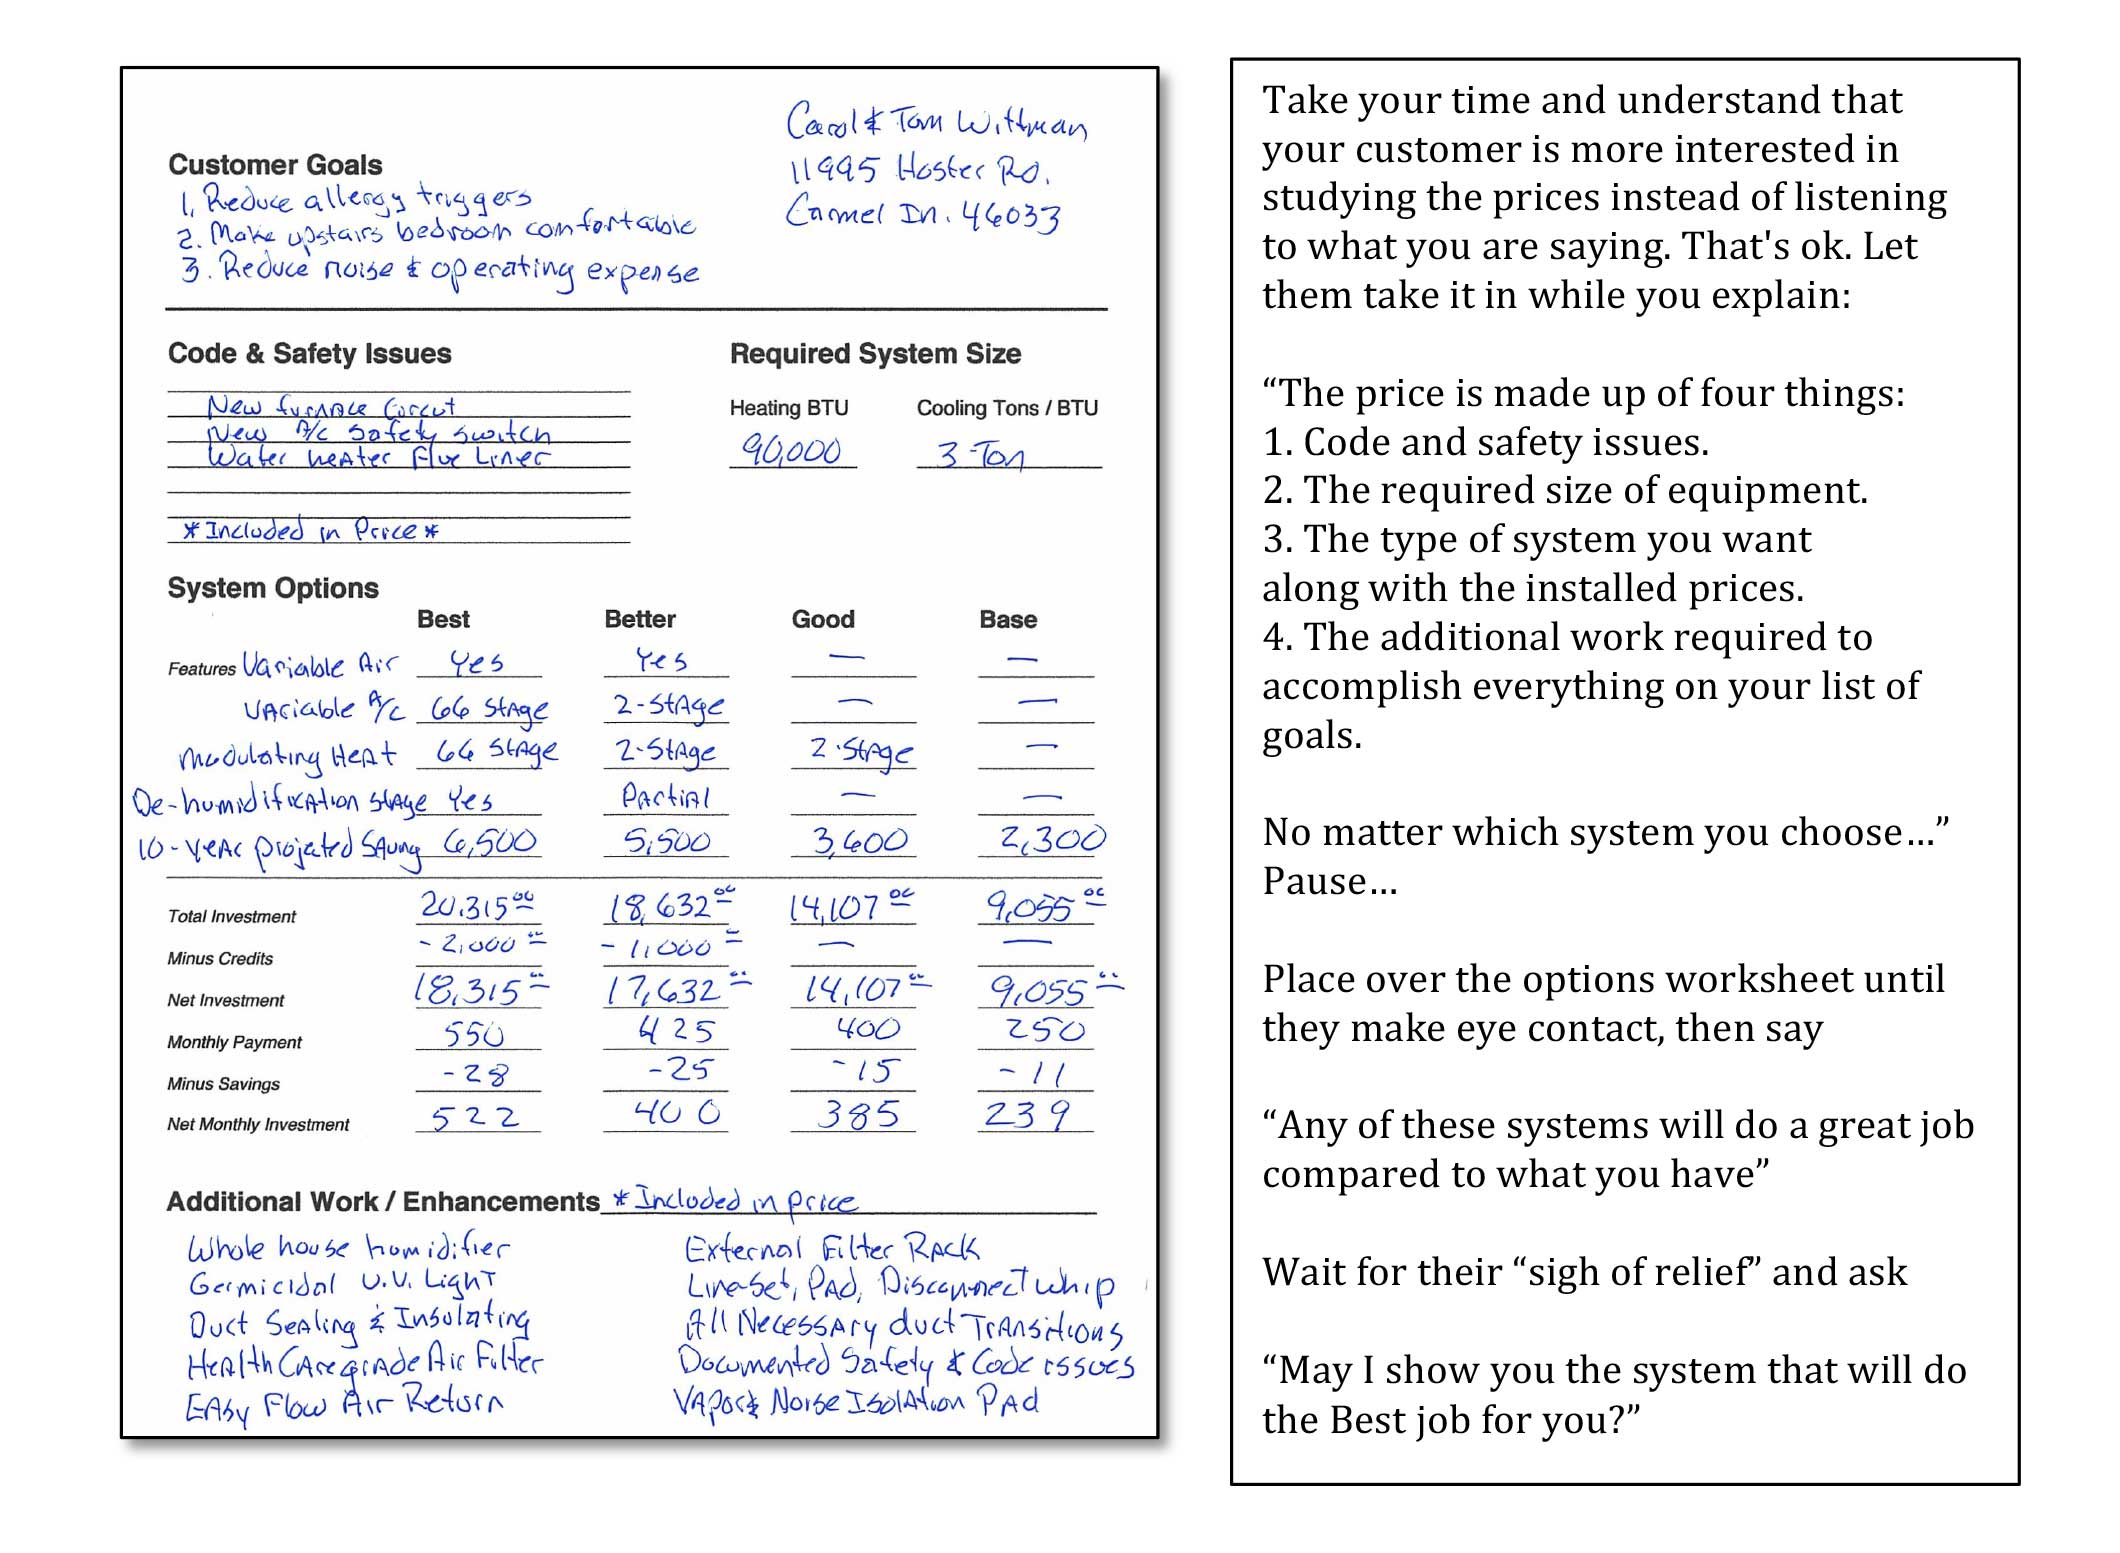 Carol & Tom Wittman
11995 Hoster RD.
Carmel In. 46033
Customer Goals
1. Reduce allergy triggers
2. Make upstairs bedroom comfortable
3. Reduce noise & operating expense
Code & Safety Issues
New furnace Circut
New A/C Safety Switch
Water heater Flue Liner
*Included in Price*
Required System Size
Heating BTU Cooling Tons / BTU
90,000 3-Ton
System Options
Best Better Good Base
Features Variable Air Yes Yes — —
Variable A/C 66 Stage 2-Stage — —
Modulating Heat 66 Stage 2-Stage 2-Stage —
De-humidification Stage Yes Partial — —
10-year projected Saving 6,500 5,500 3,600 2,300
Total Investment 20,315.00 18,632.00 14,107.00 9,055.00
Minus Credits -2,000.00 -1,000.00 — —
Net Investment 18,315.00 17,632.00 14,107.00 9,055.00
Monthly Payment 550 425 400 250
Minus Savings -28 -25 -15 -11
Net Monthly Investment 522 400 385 239
Additional Work / Enhancements *Included in price
Whole house humidifier External Filter Rack
Germicidal U.V. Light Lineset, Pad, Disconnect Whip
Duct Sealing & Insulating All Necessary duct Transitions
Health Care grade Air Filter Documented Safety & Code issues
Easy Flow Air Return Vapor & Noise Isolation Pad
Take your time and understand that
your customer is more interested in
studying the prices instead of listening
to what you are saying. That's ok. Let
them take it in while you explain:
“The price is made up of four things:
1. Code and safety issues.
2. The required size of equipment.
3. The type of system you want
along with the installed prices.
4. The additional work required to
accomplish everything on your list of
goals.
No matter which system you choose…”
Pause…
Place over the options worksheet until
they make eye contact, then say
“Any of these systems will do a great job
compared to what you have”
Wait for their “sigh of relief” and ask
“May I show you the system that will do
the Best job for you?”